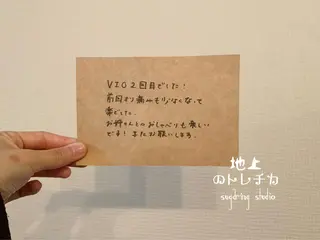 VIO2回目でした！
前回より痛みも少なくなって
楽でした。
お姉さんとのおしゃべりも楽しい
です♪ またお願いします。
地上
のトレチカ
sugaring studio